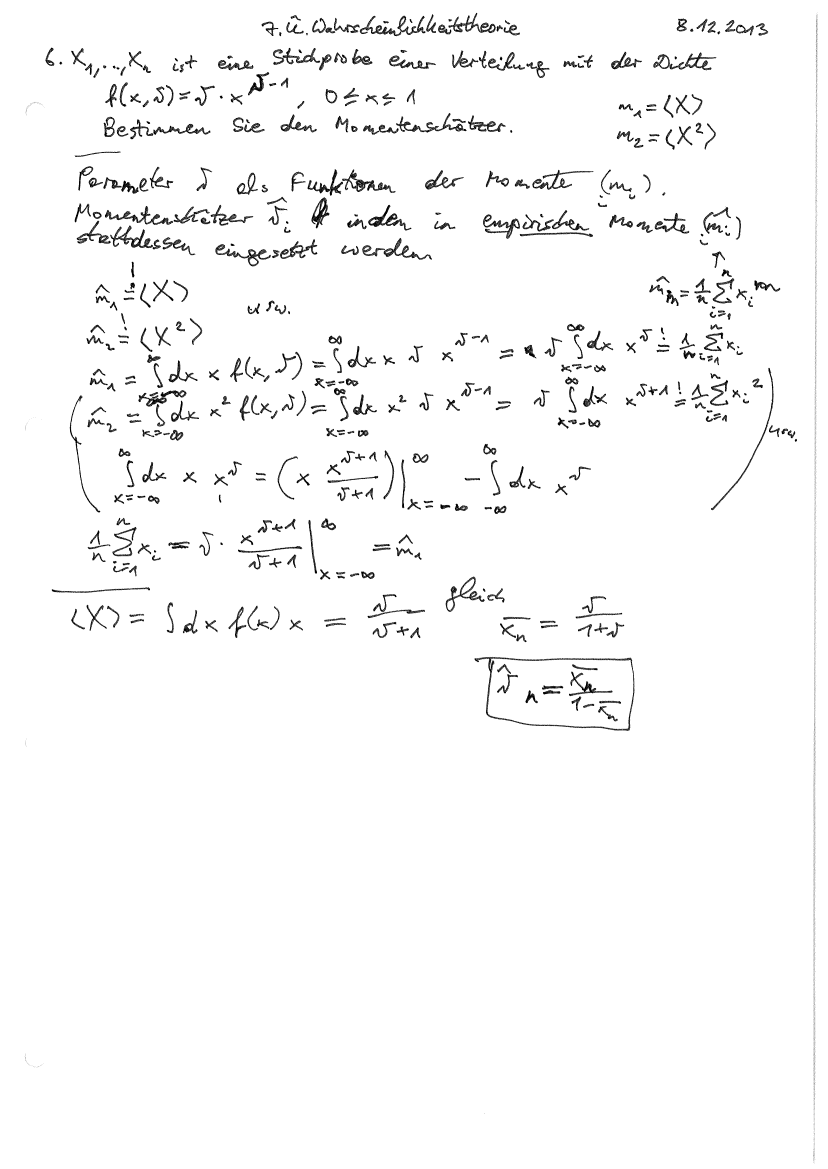 7. Ü. Wahrscheinlichkeitstheorie 8.12.2013
6. X₁,...,Xₙ ist eine Stichprobe einer Verteilung mit der Dichte
f(x,ϑ)=ϑ·x^(ϑ-1), 0≤x≤1
m₁=⟨X⟩
Bestimmen Sie den Momentenschätzer.
m₂=⟨X²⟩
Parameter ϑ als Funktionen der Momente (mᵢ)ᵢ.
Momentenschätzer ϑ̂ᵢ indem in empirischen Momente (m̂ᵢ)ᵢ
stattdessen eingesetzt werden
↑
m̂₁ =! ⟨X⟩ usw. m̂ₘ = 1/n ∑_{i=1}^{n} xᵢᵐ
m̂₂ =! ⟨X²⟩
m̂₁ = ∫_{x=-∞}^{∞} dx x f(x,ϑ) = ∫_{x=-∞}^{∞} dx x ϑ x^(ϑ-1) = ϑ ∫_{x=-∞}^{∞} dx x^ϑ =! 1/n ∑_{i=1}^{n} xᵢ
(m̂₂ = ∫_{x=-∞}^{∞} dx x² f(x,ϑ) = ∫_{x=-∞}^{∞} dx x² ϑ x^(ϑ-1) = ϑ ∫_{x=-∞}^{∞} dx x^(ϑ+1) =! 1/n ∑_{i=1}^{n} xᵢ² usw.
∫_{x=-∞}^{∞} dx x x^ϑ = (x x^(ϑ+1)/(ϑ+1))|_{x=-∞}^{∞} - ∫_{-∞}^{∞} dx x^ϑ)
1/n ∑_{i=1}^{n} xᵢ = ϑ · x^(ϑ+1)/(ϑ+1) |_{x=-∞}^{∞} = m̂₁
⟨X⟩ = ∫ dx f(x) x = ϑ/(ϑ+1) gleich x̄ₙ = ϑ/(1+ϑ)
ϑ̂ₙ = x̄ₙ/(1-x̄ₙ)